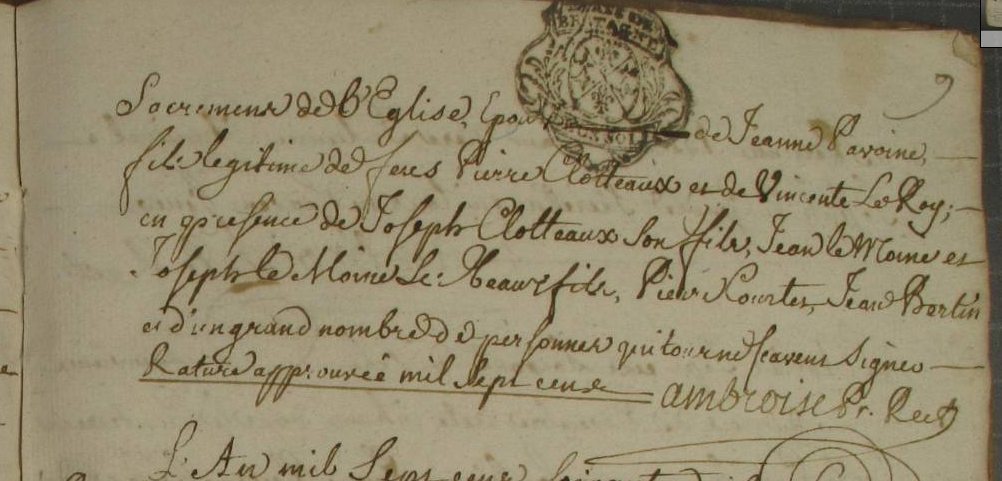 BRETAGNE
9
Sacremens de l'Eglise, Epoux de Jeanne Pavoine,
fils legitime de feus Pierre Clotteaux et de Vincente Le Roy;
en presence de Joseph Clotteaux Son fils, Jean le Moine et
Joseph le Moine Ses Beaux fils, Pierre Courtes, Jean Bertin
et d'un grand nombre de personnes qui tous ne scavent Signer
Rature approuvée mil Sept cens ambroise Pr. Rect
L'An mil Sept cens